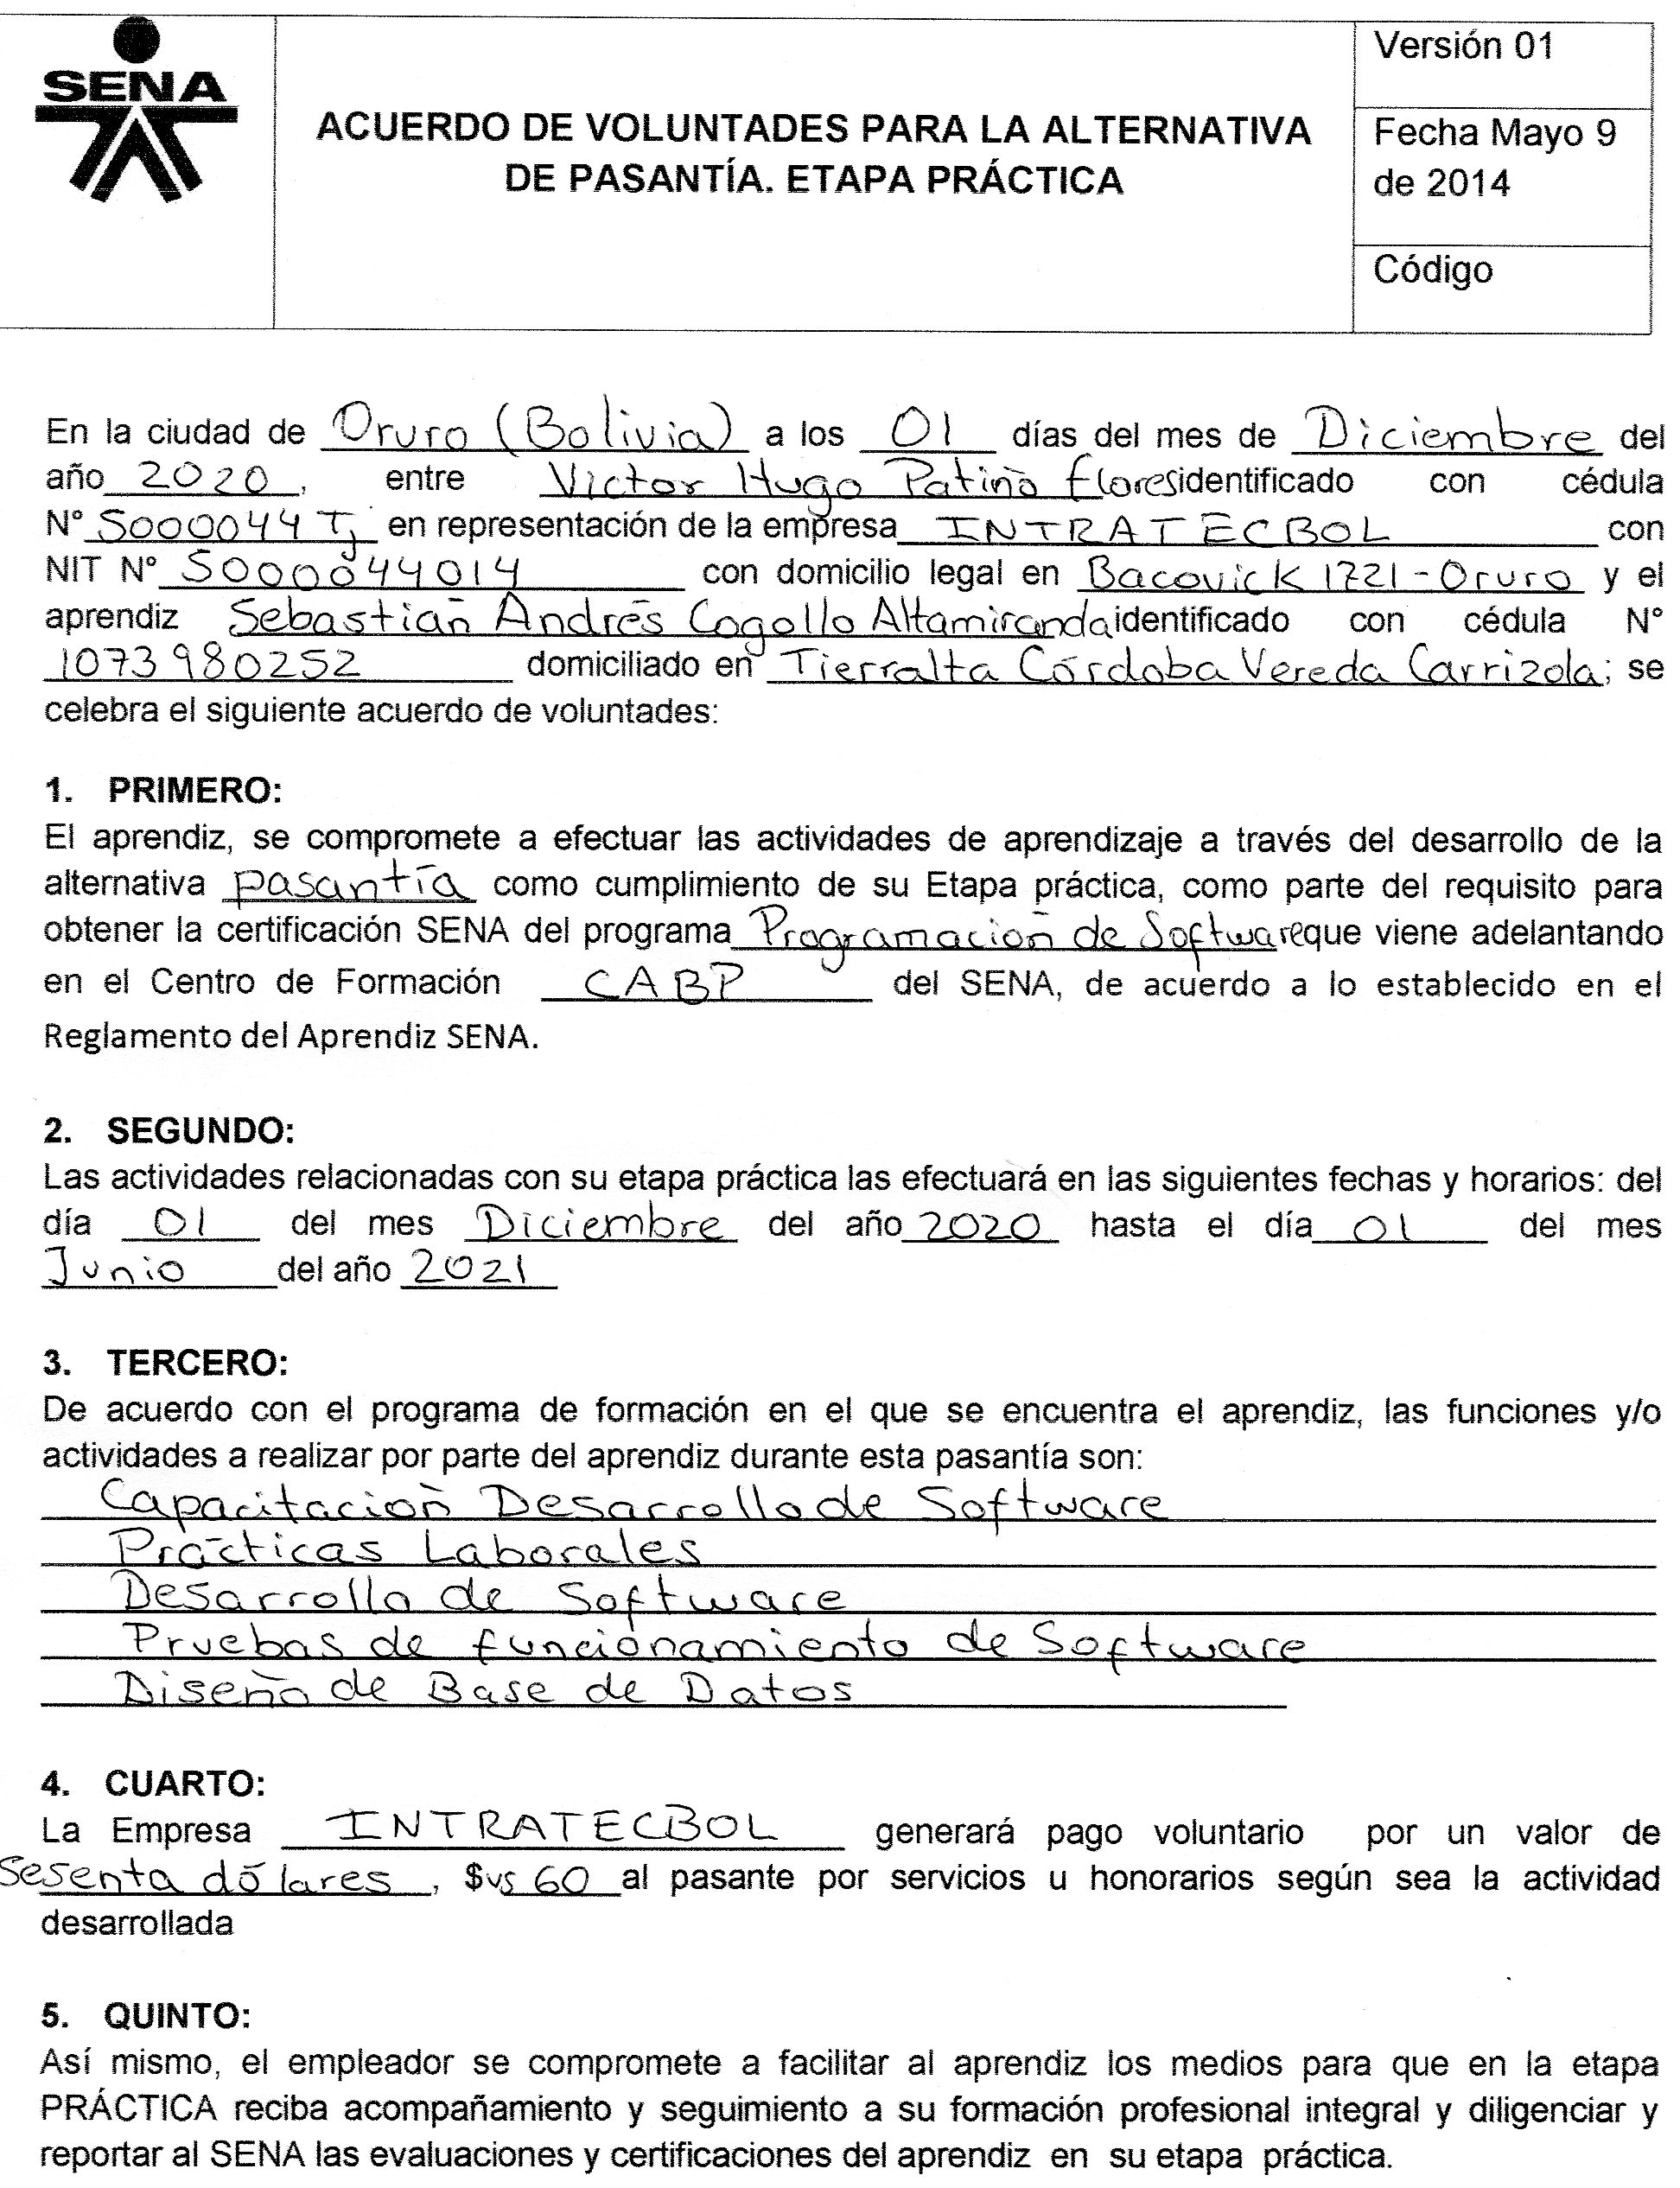 SENA
ACUERDO DE VOLUNTADES PARA LA ALTERNATIVA
DE PASANTÍA. ETAPA PRÁCTICA
Versión 01
Fecha Mayo 9
de 2014
Código
En la ciudad de Oruro (Bolivia) a los 01 días del mes de Diciembre del
año 2020, entre Victor Hugo Patiño Flores identificado con cédula
N° 5000044 Tj en representación de la empresa INTRATECBOL con
NIT N° 5000044014 con domicilio legal en Bacovick 1721 - Oruro y el
aprendiz Sebastián Andrés Cogollo Altamiranda identificado con cédula N°
1073980252 domiciliado en Tierralta Córdoba Vereda Carrizola; se
celebra el siguiente acuerdo de voluntades:
1. PRIMERO:
El aprendiz, se compromete a efectuar las actividades de aprendizaje a través del desarrollo de la
alternativa pasantía como cumplimiento de su Etapa práctica, como parte del requisito para
obtener la certificación SENA del programa Programación de Software que viene adelantando
en el Centro de Formación CABP del SENA, de acuerdo a lo establecido en el
Reglamento del Aprendiz SENA.
2. SEGUNDO:
Las actividades relacionadas con su etapa práctica las efectuará en las siguientes fechas y horarios: del
día 01 del mes Diciembre del año 2020 hasta el día 01 del mes
Junio del año 2021
3. TERCERO:
De acuerdo con el programa de formación en el que se encuentra el aprendiz, las funciones y/o
actividades a realizar por parte del aprendiz durante esta pasantía son:
Capacitación Desarrollo de Software
Prácticas Laborales
Desarrollo de Software
Pruebas de funcionamiento de Software
Diseño de Base de Datos
4. CUARTO:
La Empresa INTRATECBOL generará pago voluntario por un valor de
Sesenta dólares, $us 60 al pasante por servicios u honorarios según sea la actividad
desarrollada
5. QUINTO:
Así mismo, el empleador se compromete a facilitar al aprendiz los medios para que en la etapa
PRÁCTICA reciba acompañamiento y seguimiento a su formación profesional integral y diligenciar y
reportar al SENA las evaluaciones y certificaciones del aprendiz en su etapa práctica.